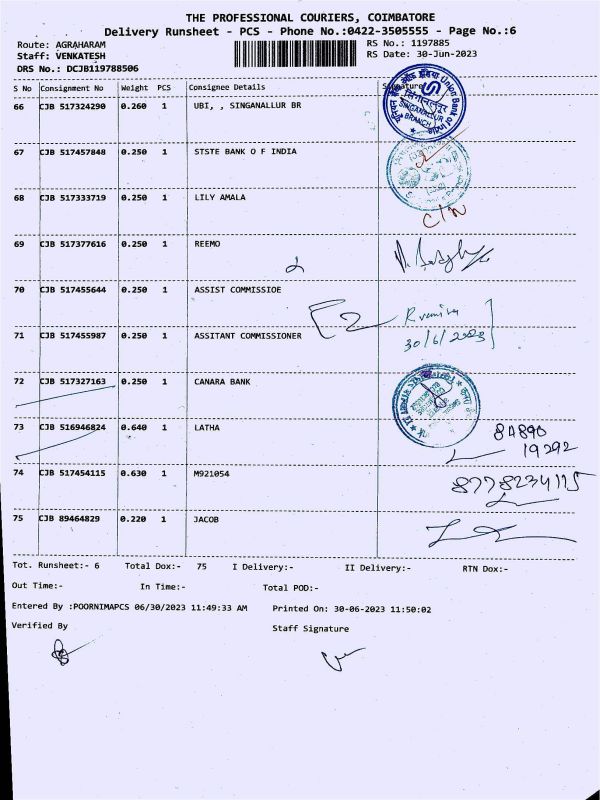 THE PROFESSIONAL COURIERS, COIMBATORE
Delivery Runsheet - PCS - Phone No.:0422-3505555 - Page No.:6
Route: AGRAHARAM
RS No.: 1197885
Staff: VENKATESH
RS Date: 30-Jun-2023
DRS No.: DCJB119788506
S No Consignment No Weight PCS Consignee Details Signature
66 CJB 517324290 0.260 1 UBI, , SINGANALLUR BR
Union Bank of India
SINGANALLUR
BRANCH
67 CJB 517457848 0.250 1 STSTE BANK O F INDIA
68 CJB 517333719 0.250 1 LILY AMALA
69 CJB 517377616 0.250 1 REEMO
70 CJB 517455644 0.250 1 ASSIST COMMISSIOE
71 CJB 517455987 0.250 1 ASSITANT COMMISSIONER
30/6/2023
72 CJB 517327163 0.250 1 CANARA BANK
73 CJB 516946824 0.640 1 LATHA
84890
19292
74 CJB 517454115 0.630 1 M921054
8778234115
75 CJB 89464829 0.220 1 JACOB
Tot. Runsheet:- 6 Total Dox:- 75 I Delivery:- II Delivery:- RTN Dox:-
Out Time:- In Time:- Total POD:-
Entered By :POORNIMAPCS 06/30/2023 11:49:33 AM Printed On: 30-06-2023 11:50:02
Verified By Staff Signature